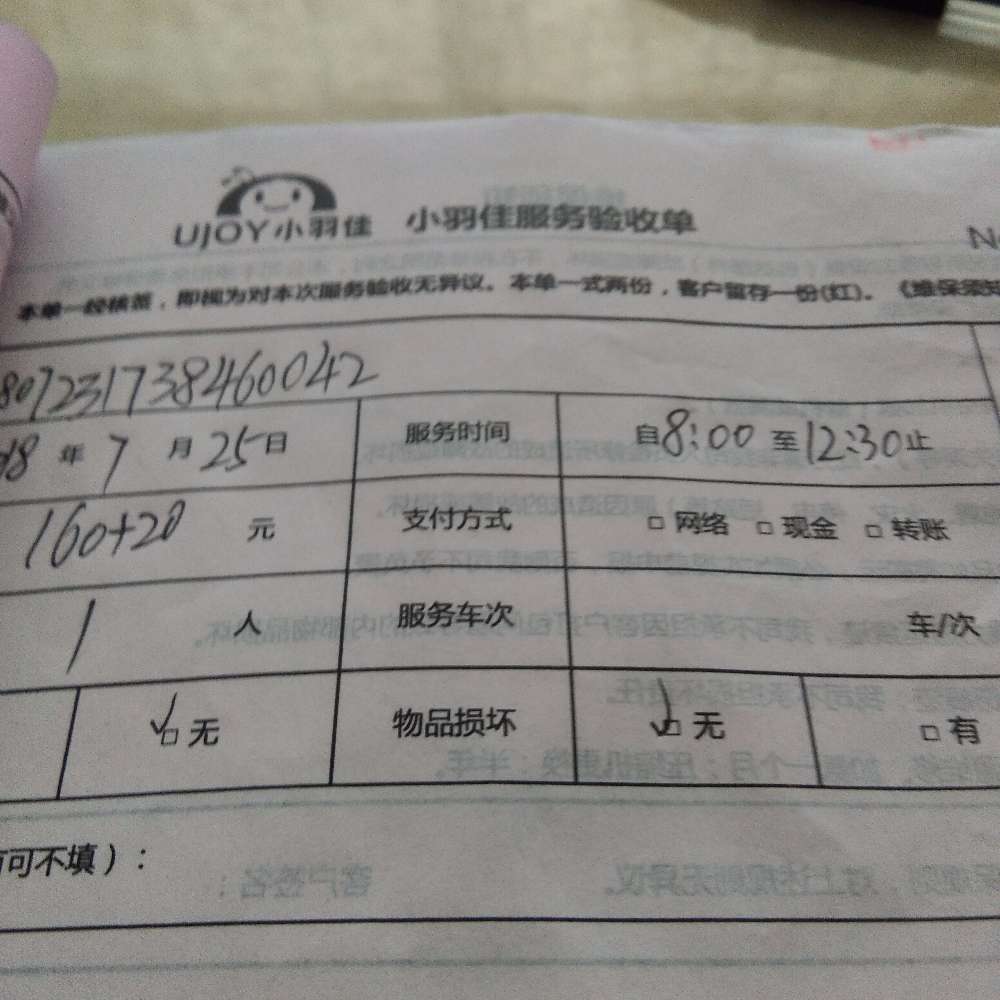 UJOY小羽佳 小羽佳服务验收单
本单一经核签，即视为对本次服务验收无异议。本单一式两份，客户留存一份(红)。《维保须知
807231738460042
18 年 7 月 25 日 服务时间 自 8:00 至 12:30 止
160+20 元 支付方式 □ 网络 □ 现金 □ 转账
1 人 服务车次 车/次
✓□ 无 物品损坏 ✓□ 无 □ 有
可不填）：